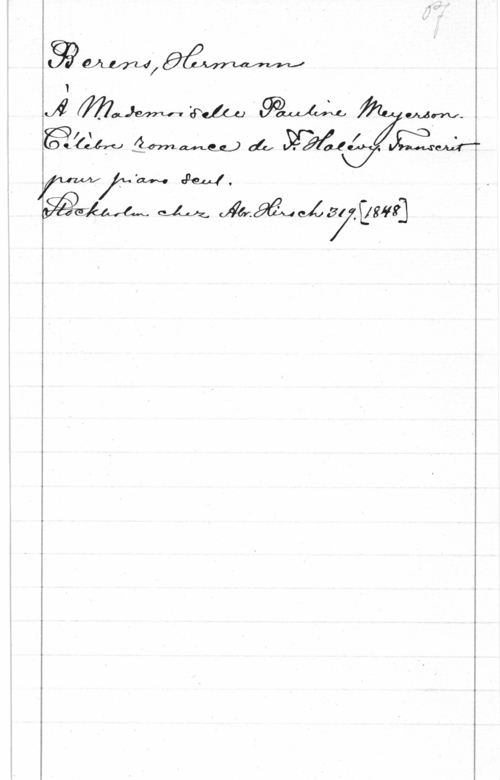 Pf
Berens, Hermann
À Mademoiselle Pauline Meyerson.
Célèbre romance de F. Halévy. Transcrit
pour piano seul.
Stockholm chez Abr. Hirsch 319. [1848]